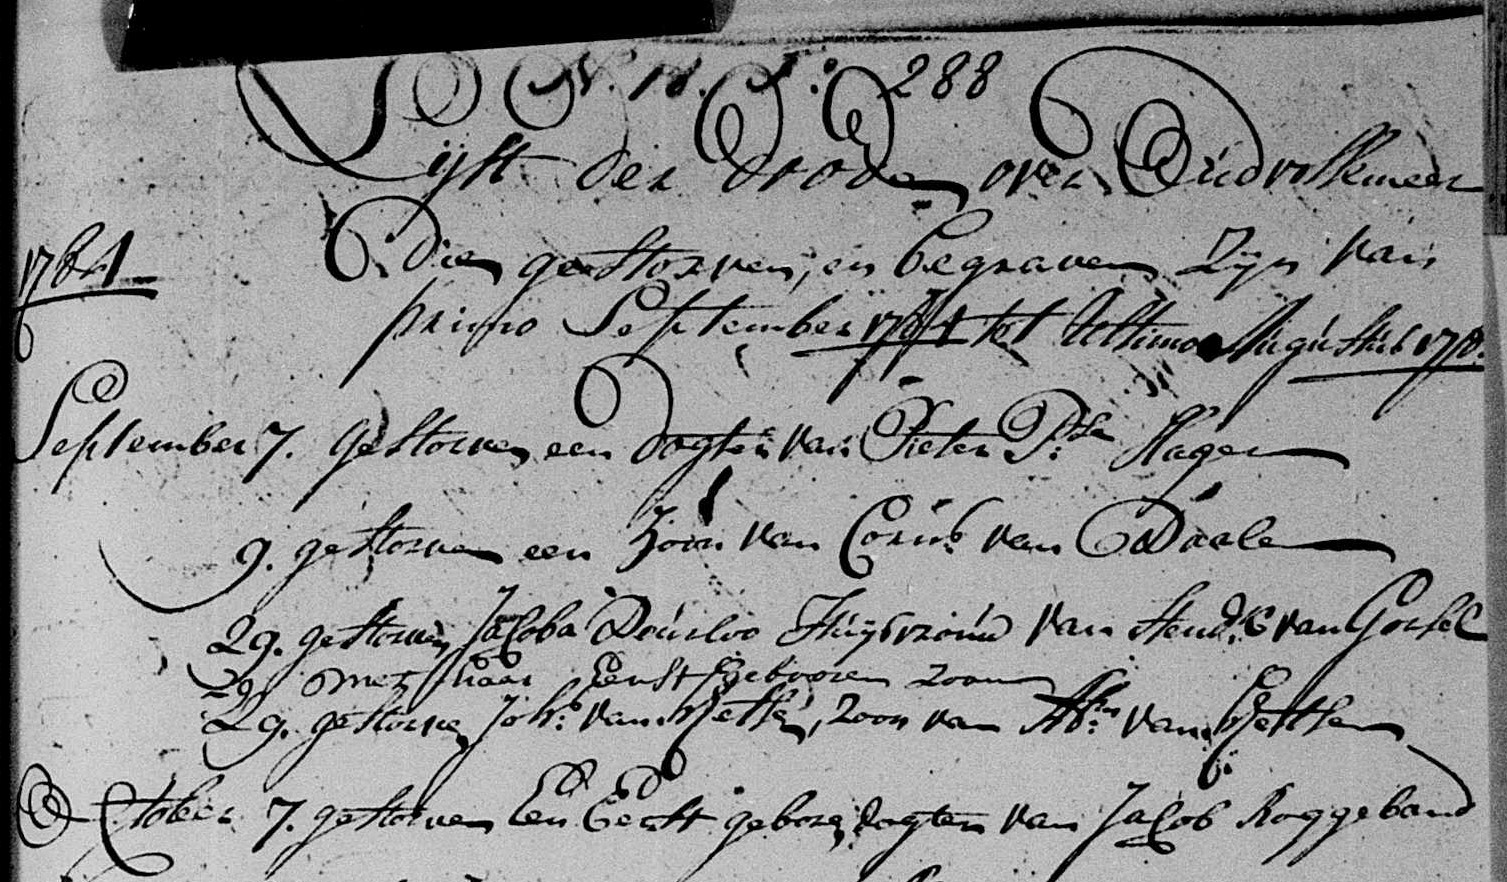 N. 18. F:o 288
Lyst der doode over Oudvossemeer
Dien gestorven, en begraven Zijn van
primo September 1784 tot Ultimo Augustus
1784
September 7. gestorven een dogter van Pieter P:se Hage
9. gestorven een Zoon van Corns. van Daale
29. gestorven Jacoba Dourloo Huysvrouw van Hend:k van Gorsel
29 met haar Eerst geboren zoon
29. gestorven Joh:s van, zoon van Abm: van
October 7. gestorven Een Eerst geboren dogter van Jacob Roggeband